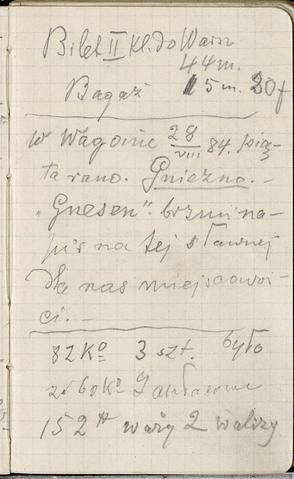 Bilet II kl. do Warsz
44 m.
Bagaż 15 m. 20 f
w Wagonie 28/VIII 84. pią-
ta rano. Gniezno. -
"Gnesen" brzmi na-
pis na tej sławnej
dla nas miejscowoś-
ci. -
82 Ko 3 szt. było
2 60 Ko
152 tt waży 2 walizy